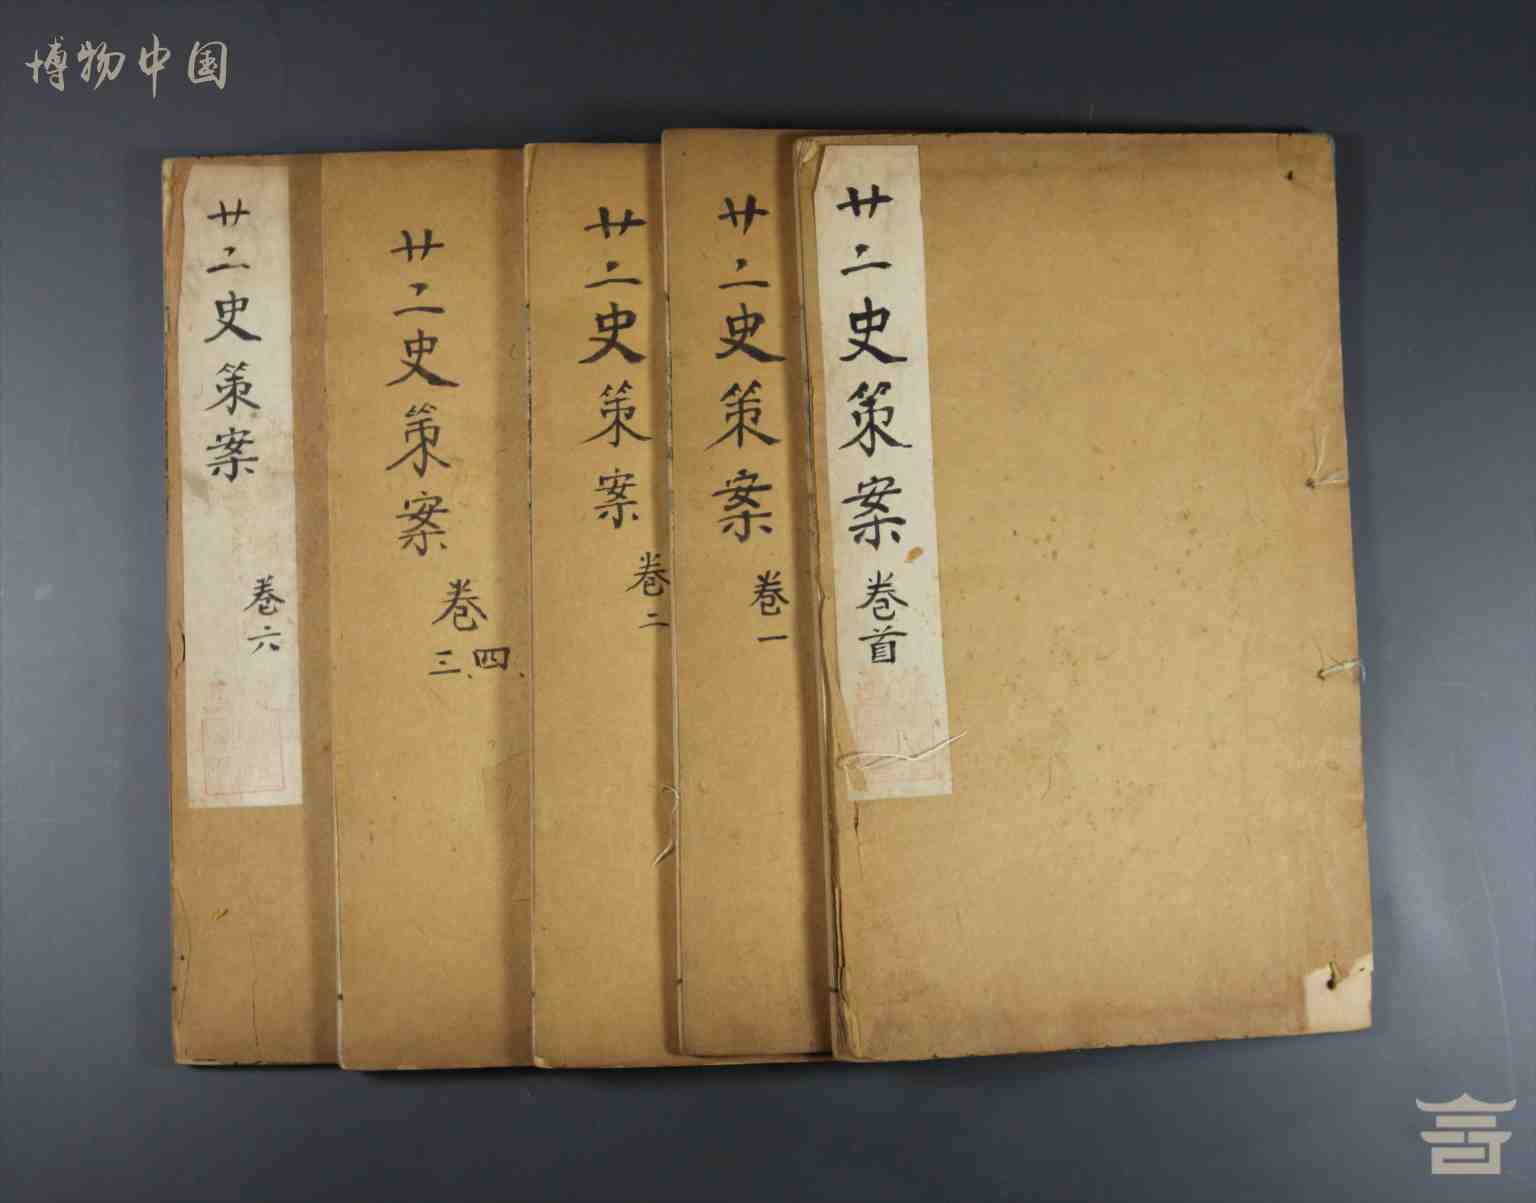 博物中国
廿二史策案 卷首
廿二史策案 卷一
廿二史策案 卷二
廿二史策案 卷三、四、
廿二史策案 卷六